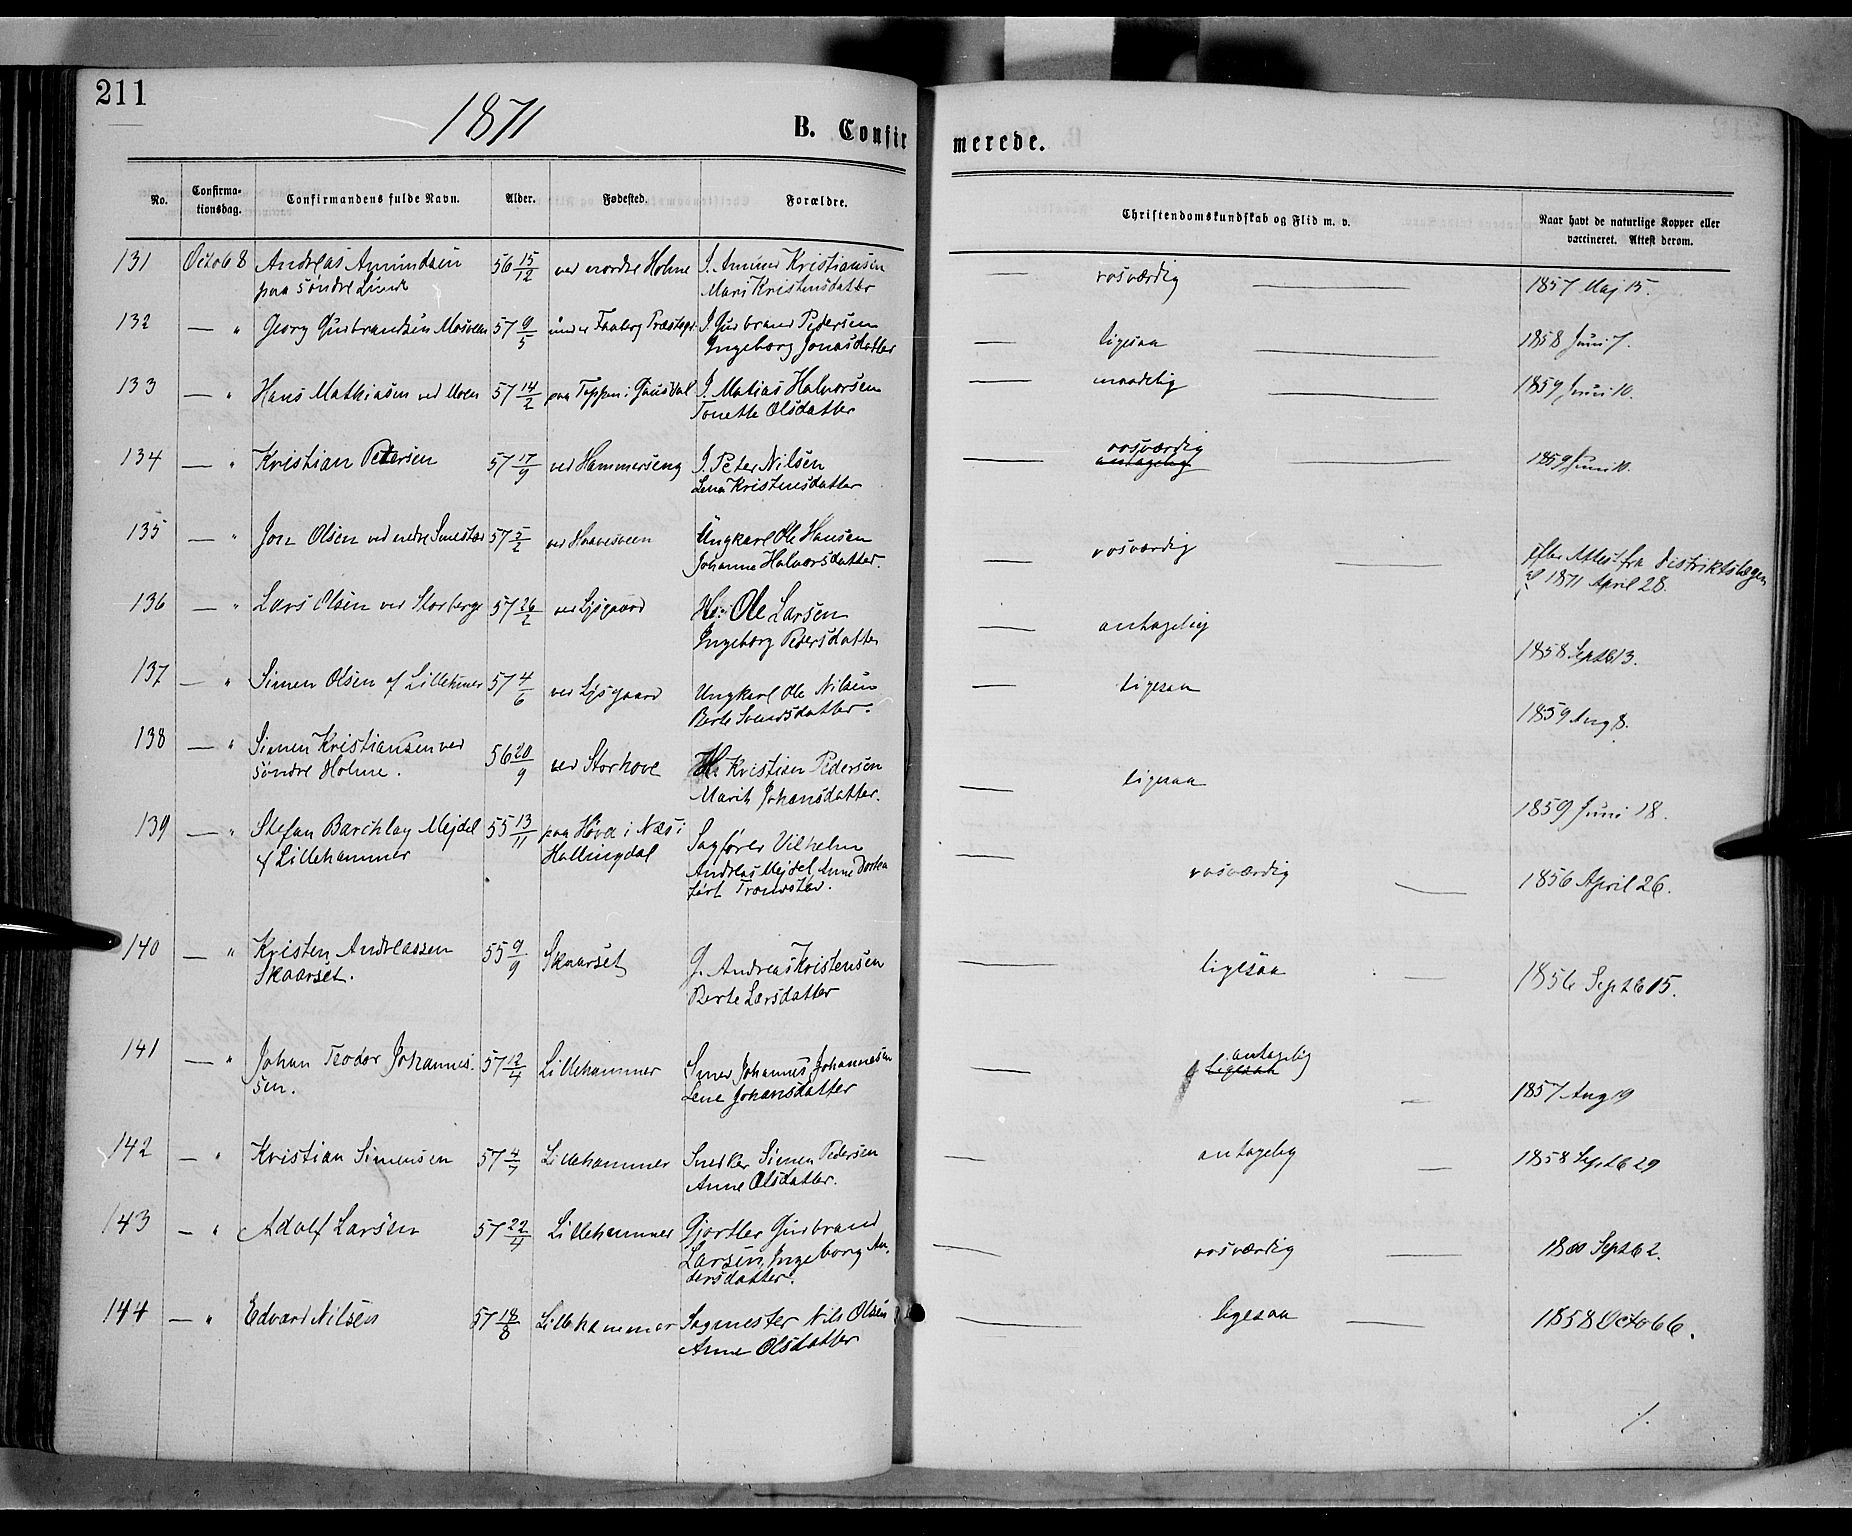 211
1871
B. Confirmerede.
No. Confirmationsdag. Confirmandens fulde Navn. Alder. Fødested. Forældre. Christendomskundskab og Flid m. v. Naar havt de naturlige Kopper eller vaccineret. Attest derom.
131 Octob 8 Andreas Amundsen 56 15/12 ved nordre Holme I. Amund Kristiansen — rosværdig — 1857 Maj 15.
paa søndre Lunde Mari Kristensdatter
132 — " Georg Gudbrandsen Mosveen 57 9/5 under Faaberg Præstegd I. Gudbrand Pedersen — ligesaa — 1858 Juni 7.
Ingeborg Jonasdatter
133 — " Hans Mathiasen ved Moen 57 14/2 paa Toppen i Gausdal I. Matias Halvorsen — maadelig — 1859 Juni 10.
Tonette Olsdatter
134 — " Kristian Petersen 57 17/9 ved Hammerseng I. Peter Nilsen — rosværdig — 1859 Juni 10.
Lena Kristensdatter antagelig
135 — " Jon Olsen ved nedre Smestad 57 5/2 ved Haavesveen Ungkarl Ole Hansen — rosværdig — efter Attest fra Distriktslægen
Johanne Halvorsdatter. af 1871 April 28.
136 — " Lars Olsen ved Storberge 57 26/2 ved Lysgaard Ole Larsen — antagelig 1858 Septb 13.
Ingeborg Pedersdatter
137 — " Simen Olsen af Lillehmer 57 4/6 ved Lysgaard Ungkarl Ole Nilsen — ligesaa 1859 Aug 8.
Berte Svendsdatter.
138 — " Simen Kristiansen ved 56 20/9 ved Storhove Kristian Pedersen — ligesaa 1859 Juni 18.
søndre Holme. Marit Johansdatter.
139 — " Stefan Barchlay Mejdel 55 13/11 paa Hove i Næs i Sagfører Vilhelm — rosværdig — 1856 April 26.
af Lillehammer Hallingdal Andreas Mejdel, Anne Dortea
født Tronsdtr.
140 — " Kristen Andreassen 55 9/9 Skaarset G. Andreas Kristensen — ligesaa — 1856 Septb 15.
Skaarset. Berte Larsdatter
141 — " Johan Teodor Johannes- 57 12/4 Lillehammer Smed Johannes Johannesen — antagelig — 1857 Aug 19
sen. Lene Johansdatter ligesaa
142 — " Kristian Simensen 57 4/7 Lillehammer Snedker Simen Pedersen — antagelig — 1858 Septb 29
Anne Olsdatter.
143 — " Adolf Larsen 57 22/4 Lillehammer Gjørtler Gudbrand — rosværdig — Septb 2.
Larsen, Ingeborg An-
dersdatter.
144 — " Edvard Nilsen 57 18/8 Lillehammer Sagmester Nils Olsen — ligesaa — 1858 Octob 6.
Anne Olsdatter